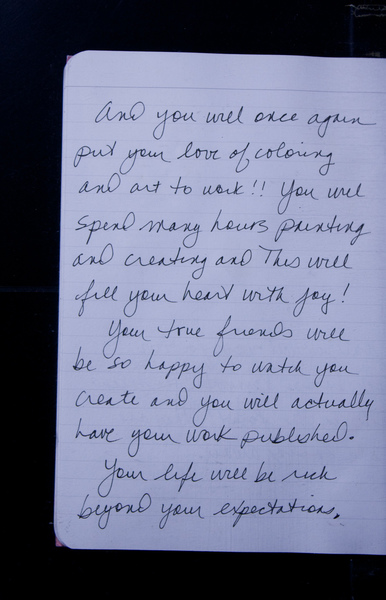 And you will once again
put your love of coloring
and art to work!! You will
spend many hours painting
and creating and This will
fill your heart with joy!
Your true friends will
be so happy to watch you
create and you will actually
have your work published.
Your life will be rich
beyond your expectations.